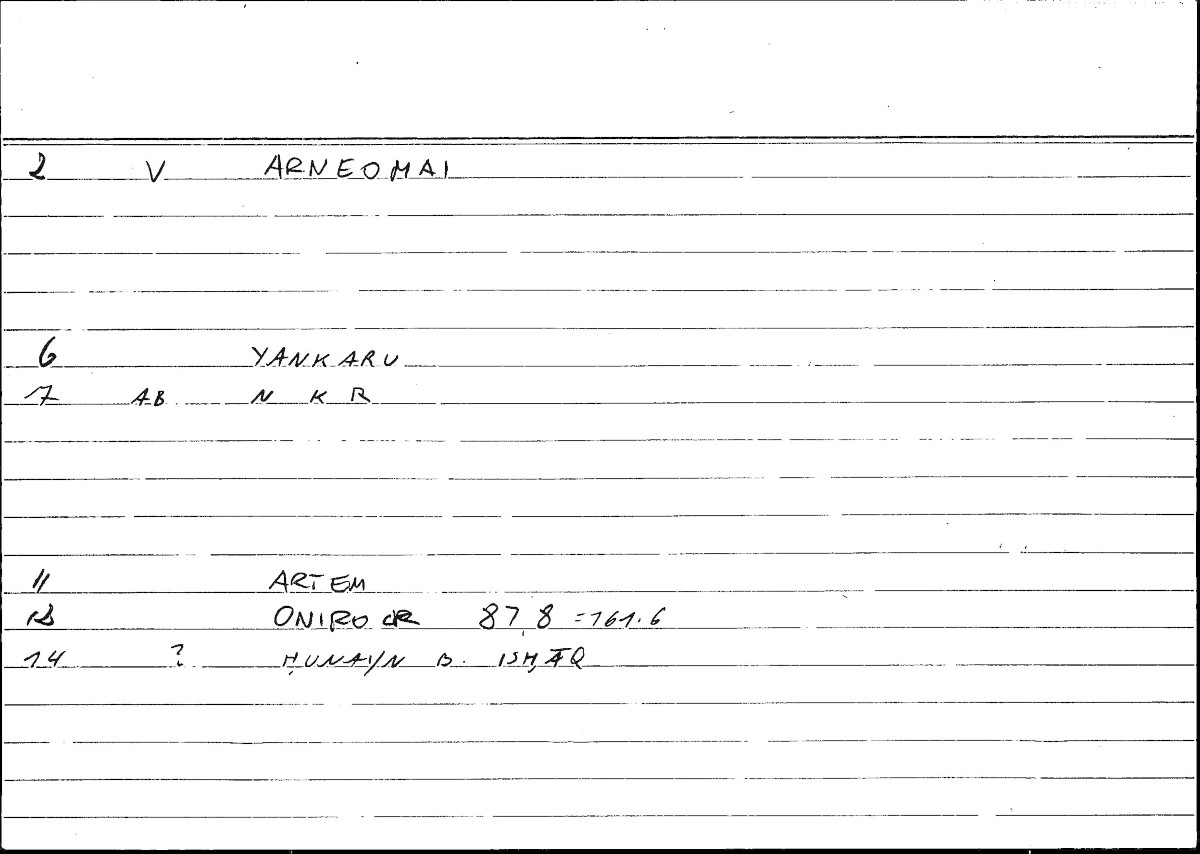 2 V ARNEOMAI
6 YANKARU
7 AB N K R
11 ARTEM
ONIROCR 87,8 =161.6
14 ? ḤUNAYN B. ISḤĀQ